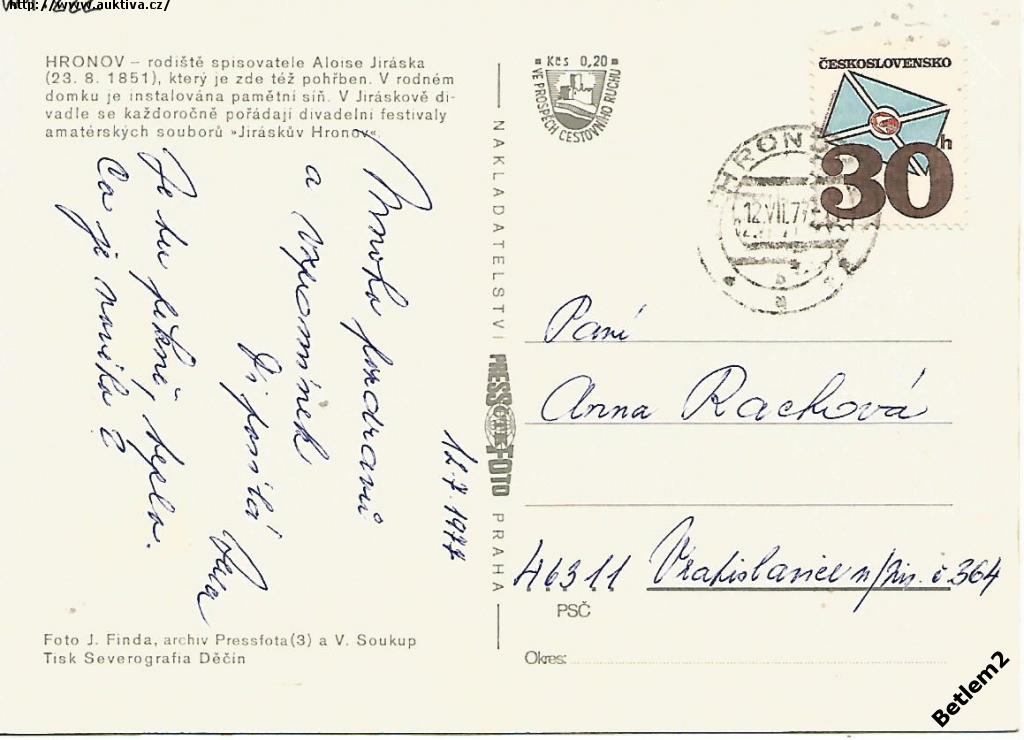 http://www.auktiva.cz/
HRONOV – rodiště spisovatele Aloise Jiráska
(23. 8. 1851), který je zde též pohřben. V rodném
domku je instalována pamětní síň. V Jiráskově di-
vadle se každoročně pořádají divadelní festivaly
amatérských souborů »Jiráskův Hronov«.
12.7.1977
Mnoho pozdravů
a vzpomínek
Ti posílá
Je tu pěkně, teplo.
Co je nového?
Foto J. Finda, archiv Pressfota (3) a V. Soukup
Tisk Severografia Děčín
NAKLADATELSTVÍ PRESSFOTO PRAHA
Kčs 0,20
VE PROSPĚCH CESTOVNÍHO RUCHU
ČESKOSLOVENSKO
30h
HRONOV
12.VII.77
Paní
Anna Rachová
46311 Vratislavice n/Nis. č 364
PSČ
Okres:
Betlem2